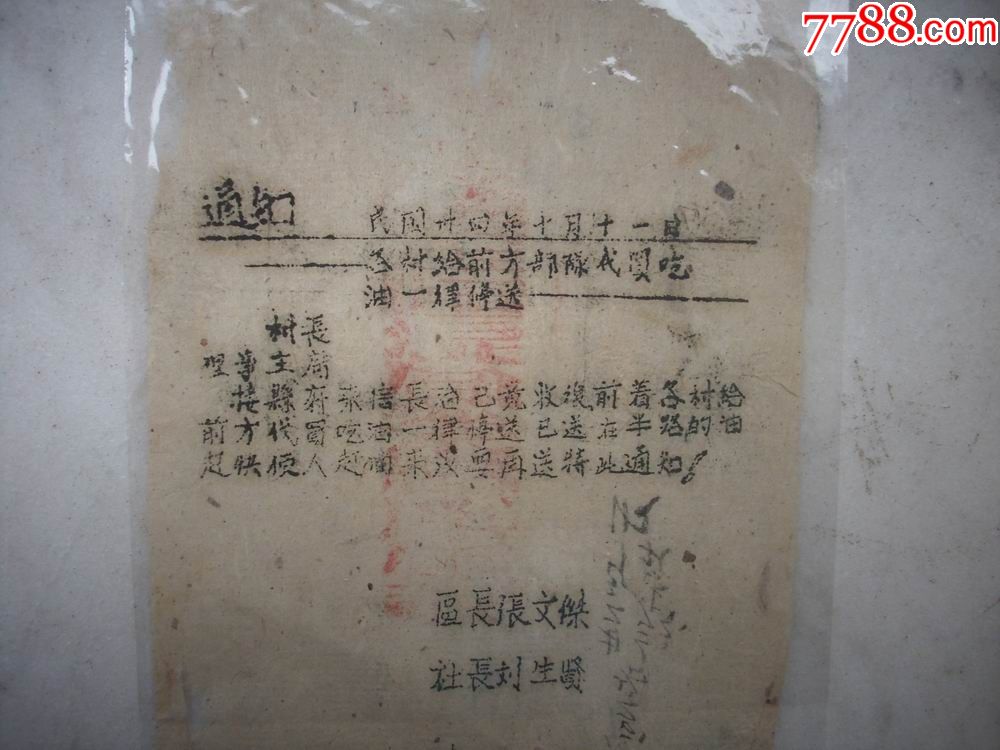 通知 民國卅四年十月十一日
各村給前方部隊代買吃
油一律停送
村長
理事主席
接縣府來信長治已克收復前着各村給
前方代買吃油一律停送已送在半路的油
赶快使人赶回來沒要再送特此通知！
區長張文傑
社長刘生賢
7788.com